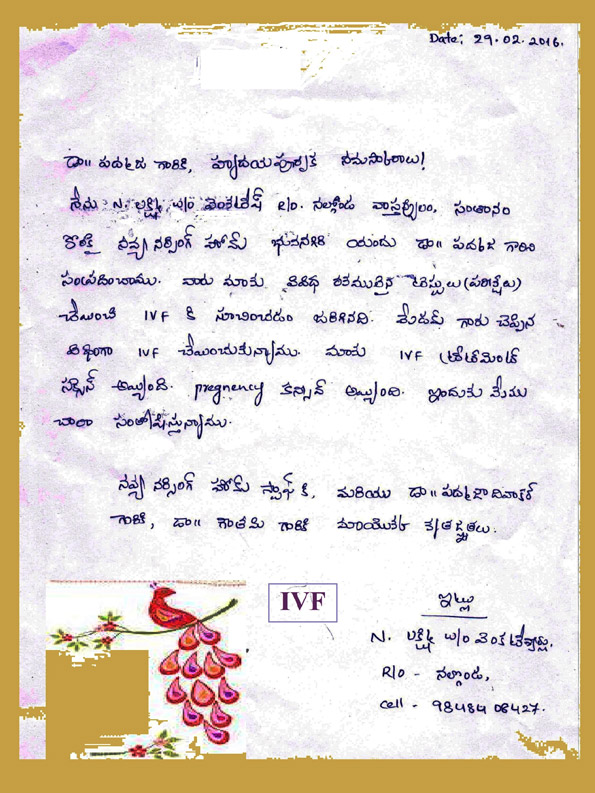 Date: 29.02.2016.
డా॥ పద్మజ గారికి, హృదయపూర్వక నమస్కారాలు!
నేను N. లక్ష్మి w/o వెంకటేష్ R/o. నల్గొండ వాస్తవ్యులం, సంతానం
కొరకై నవ్య నర్సింగ్ హోమ్ భువనగిరి యందు డా॥ పద్మజ గారిని
సంప్రదించాము. వారు మాకు వివిధ రకములైన టెస్టులు (పరీక్షలు)
చేయించి IVF కి సూచించడం జరిగినది. మేడమ్ గారు చెప్పిన
విధంగా IVF చేయించుకున్నాము. మాకు IVF ట్రీట్‌మెంట్
సక్సెస్ అయ్యింది. pregnency కన్ఫామ్ అయ్యింది. ఇందుకు మేము
చాలా సంతోషిస్తున్నాము.
నవ్య నర్సింగ్ హోమ్ స్టాఫ్ కి, మరియు డా॥ పద్మజా దివాకర్
గారికి, డా॥ గౌతమి గారికి మాయొక్క కృతజ్ఞతలు.
IVF
ఇట్లు
N. లక్ష్మి w/o వెంకటేశ్వర్లు,
R/o - నల్గొండ,
cell - 98484 08427.